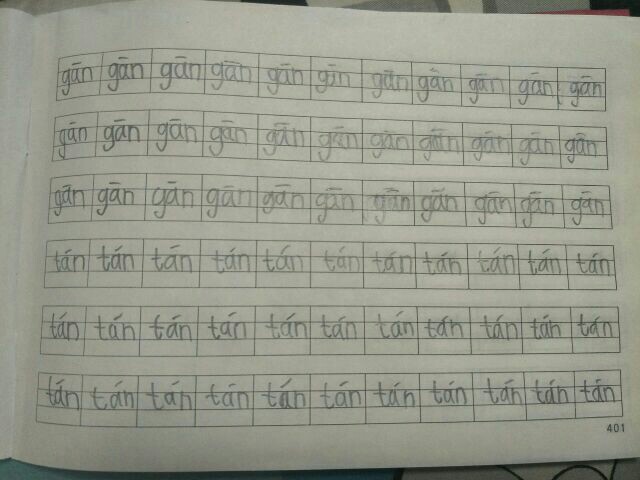 gān gān gān gān gān gān gān gān gān gān gān
gān gān gān gān gān gān gān gān gān gān gān
gān gān gān gān gān gān gān gān gān gān gān
tán tán tán tán tán tán tán tán tán tán tán
tán tán tán tán tán tán tán tán tán tán tán
tán tán tán tán tán tán tán tán tán tán tán
401